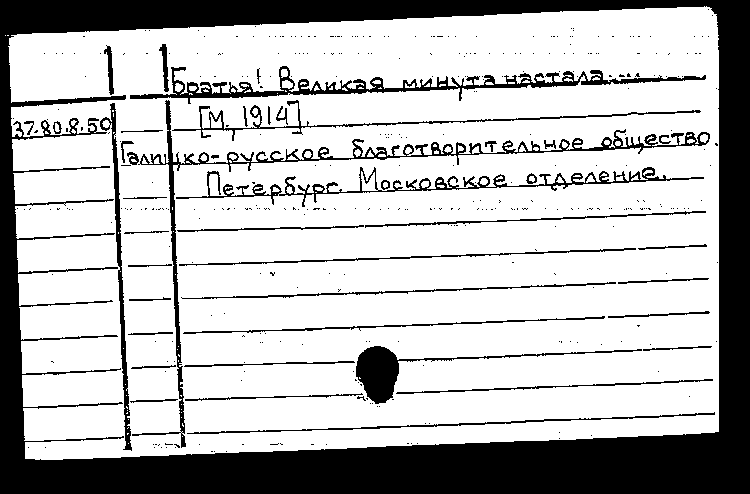 Братья! Великая минута настала....
[М., 1914].
37.80.8.50
Галицко-русское благотворительное общество.
Петербург. Московское отделение.